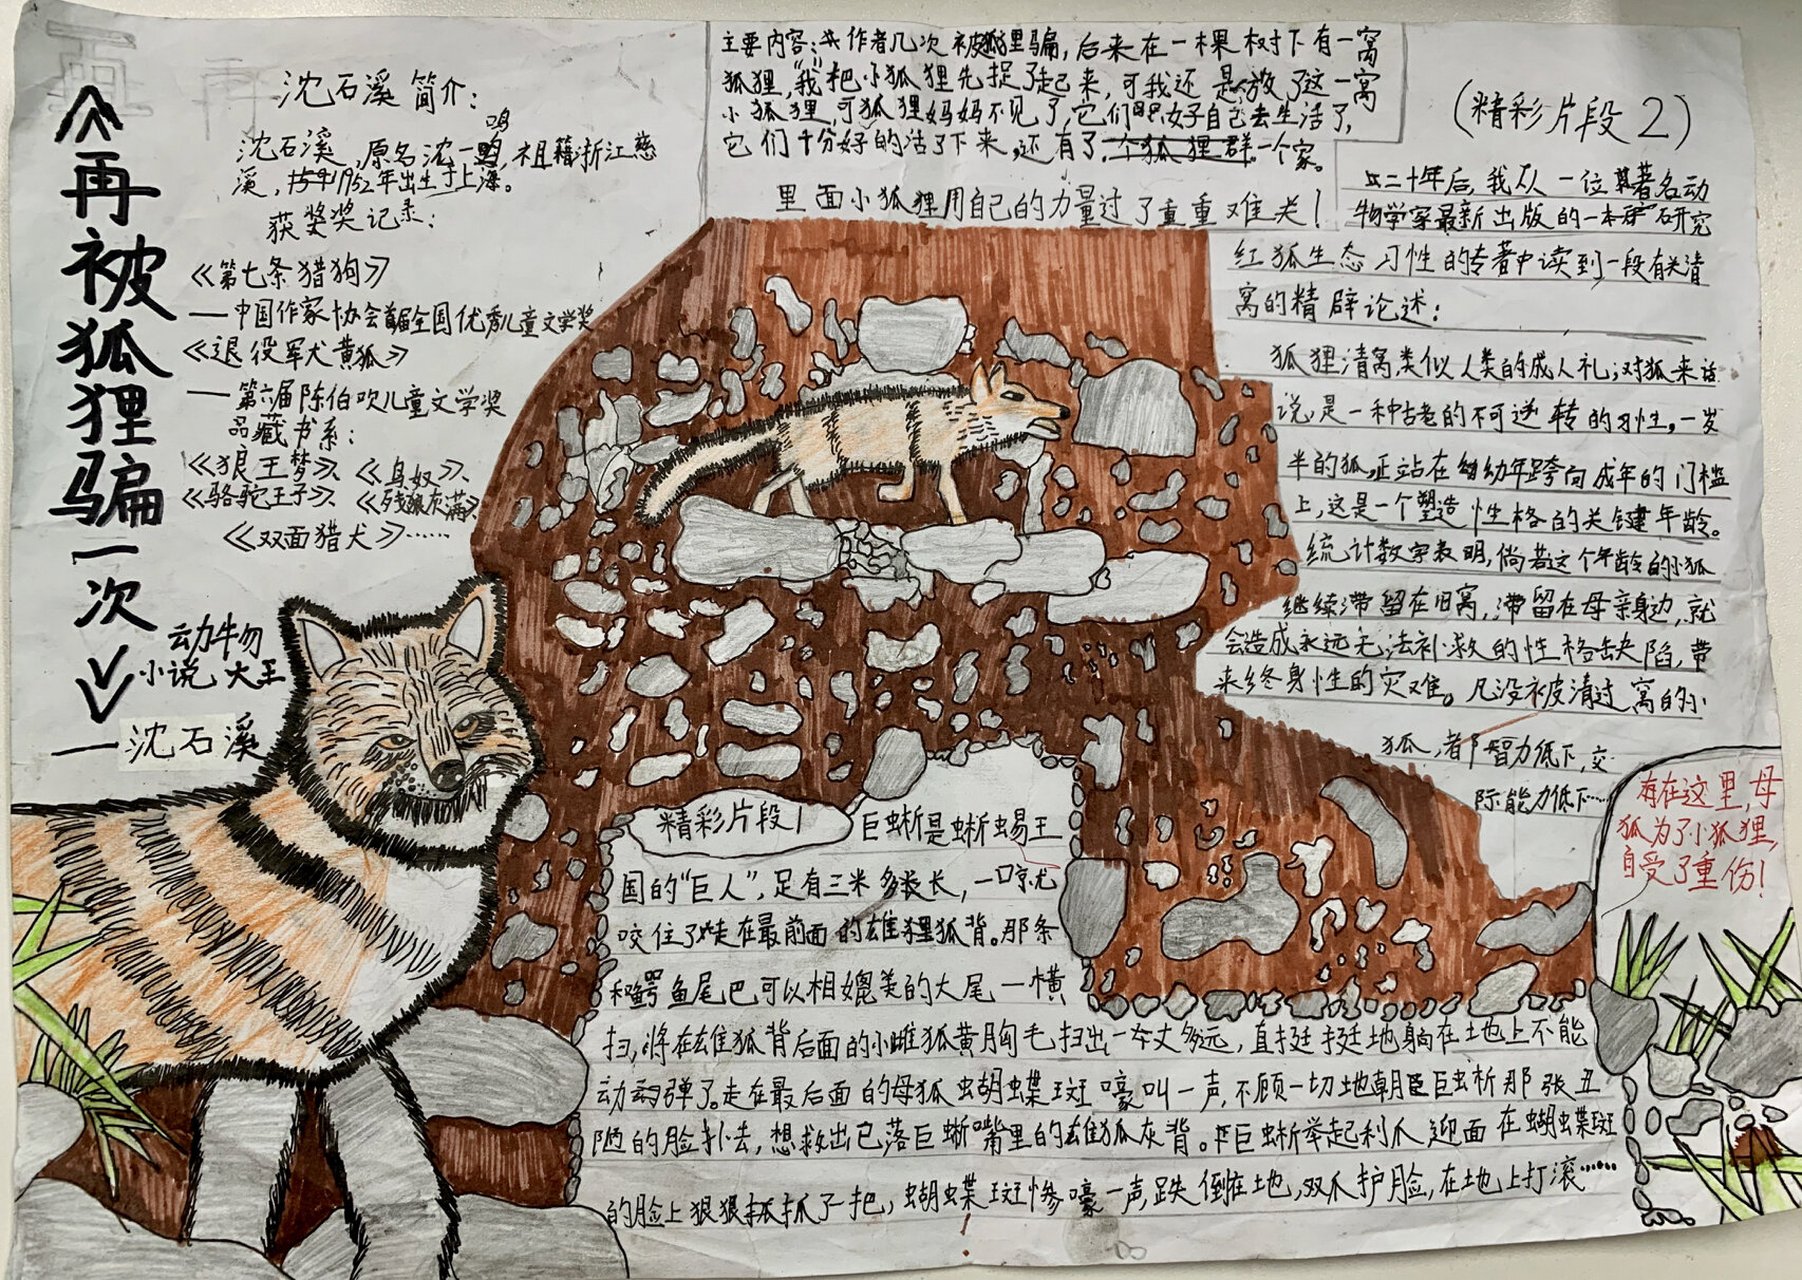 《再被狐狸骗一次》
动物
小说大王
——沈石溪
沈石溪简介:
沈石溪,原名沈一鸣,祖籍浙江慈
溪,1952年出生于上海。
获奖记录:
《第七条猎狗》
——中国作家协会首届全国优秀儿童文学奖
《退役军犬黄狐》
——第六届陈伯吹儿童文学奖
品藏书系:
《狼王梦》、《鸟奴》、
《骆驼王子》、《残狼灰满》、
《双面猎犬》……
主要内容:作者几次被狐狸骗,后来在一棵树下有一窝
狐狸,“我”把小狐狸先捉了起来,可我还是放了这一窝
小狐狸,可狐狸妈妈不见了,它们只好自己去生活了,
它们十分好的活了下来,还有了一个家。
里面小狐狸用自己的力量过了重重难关!
(精彩片段2)
二十年后,我从一位著名动
物学家最新出版的一本研究
红狐生态习性的专著中读到一段有关清
窝的精辟论述:
狐狸清窝类似人类的成人礼;对狐来说
说,是一种古老的不可逆转的习性,一岁
半的狐,正站在幼年跨向成年的门槛
上,这是一个塑造性格的关键年龄。
统计数字表明,倘若这个年龄的小狐
继续滞留在旧窝,滞留在母亲身边,就
会造成永远无法补救的性格缺陷,带
来终身性的灾难。凡没被清过窝的小
狐,都智力低下,交
际能力低下……
存在这里,母
狐为了小狐狸,
自受了重伤!
精彩片段1
巨蜥是蜥蜴王
国的“巨人”,足有三米多长,一口就
咬住了走在最前面的雄狐狸狐背。那条
和鳄鱼尾巴可以相媲美的大尾一横
扫,将在雄狐背后面的小雌狐黄胸毛扫出一丈多远,直挺挺地躺在地上不能
动弹了。走在最后面的母狐蝴蝶斑嚎叫一声,不顾一切地朝巨蜥那张丑
陋的脸扑去,想救出已落巨蜥嘴里的雄狐灰背。巨蜥举起利爪迎面在蝴蝶斑
的脸上狠狠抓了一把,蝴蝶斑惨嚎一声,跌倒在地,双爪护脸,在地上打滚……